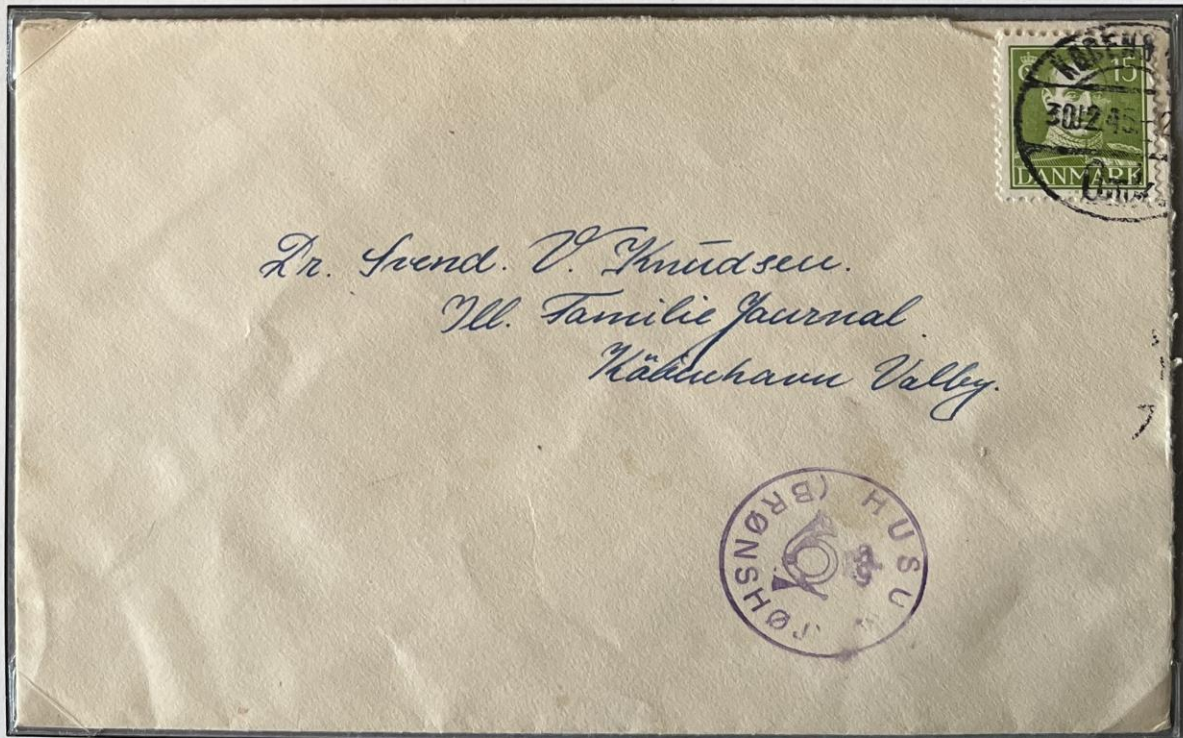 15
DANMARK
KØBENH
30.12.4
Omk
Dr. Svend. V. Knudsen.
Ill. Familie Journal.
Käbenhavn Valby.
HUSUM (BRØNSHØJ